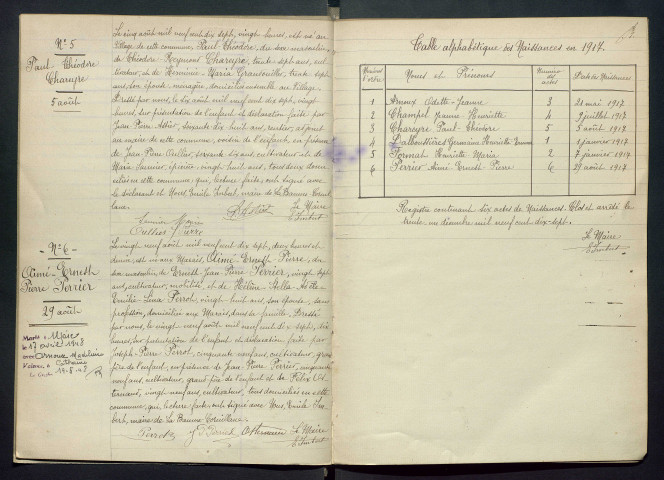 N° 5
Paul Théodore
Chareyre
5 août
Le cinq août mil neuf cent dix sept, vingt heures, est né au
village de cette commune, Paul Théodore, du sexe masculin,
de Théodore Régmont Chareyre, trente sept ans, cul
tivateur, et de Herminie Maria, trente sept
ans, son épouse, ménagère, domiciliés ensemble au village.
Dressé par nous, le six août mil neuf cent dix sept, vingt
heures, sur présentation de l'enfant et déclaration faite par
Jean Pierre Astier, soixante dix huit ans, rentier, adjoint
au maire de cette commune, voisin de l'enfant, en présence
de Jean Pierre Ouillier, soixante dix ans, cultivateur et de
Marie, vingt huit ans, tous deux domi
ciliés en cette commune, qui, lecture faite, ont signé avec
le déclarant et Nous, Emile Imbert, maire de La Baume Cornil
lane.
Le Maire
E. Imbert
N° 6
Aimé Ernest
Pierre Perrier
29 août
Marié à
le 17 avril 1943
avec
Le vingt neuf août mil neuf cent dix sept, deux heures et
demie, est né aux Marais, Aimé Ernest Pierre, du
sexe masculin, de Ernest Jean Pierre Perrier, vingt sept
ans, cultivateur, mobilisé et de Hélène Stella
Emilie Léna Perrot, vingt huit ans, son épouse, sans
profession, domiciliés aux Marais, dans sa famille. Dressé
par nous, le vingt neuf août mil neuf cent dix sept, dix
heures, sur présentation de l'enfant et déclaration faite par
Joseph Pierre Perrot, cinquante neuf ans, cultivateur, grand
père de l'enfant, en présence de Jean Pierre Perrier, cinquante
neuf ans, cultivateur, grand père de l'enfant et de Félix
vingt neuf ans, cultivateur, tous domiciliés en cette
commune, qui, lecture faite, ont signé avec Nous, Emile Im
bert, maire de La Baume Cornillane.
Perrot
Le Maire
E. Imbert
3.
Table alphabétique des Naissances en 1917.
Numéros d'ordre Noms et Prénoms Numéros des actes Date des Naissances
1 Arnoux Odette Jeanne 3 21 mai 1917
2 Champel Jeanne Henriette 4 9 juillet 1917
3 Chareyre Paul Théodore 5 5 août 1917
4 Germaine Henriette Emma 1 1 janvier 1917
5 Henriette Maria 2 7 janvier 1917
6 Perrier Aimé Ernest Pierre 6 29 août 1917
Registre contenant six actes de Naissances. Clos et arrêté le
trente un décembre mil neuf cent dix sept.
Le Maire
E. Imbert